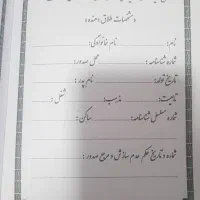 مشخصات طلاق دهنده
نام: نام خانوادگی:
شماره شناسنامه: محل صدور:
تاریخ تولد: نام پدر:
تابعیت: مذهب: شغل:
شماره مسلسل شناسنامه: ساکن:
شماره و تاریخ حکم عدم سازش و مرجع صدور: